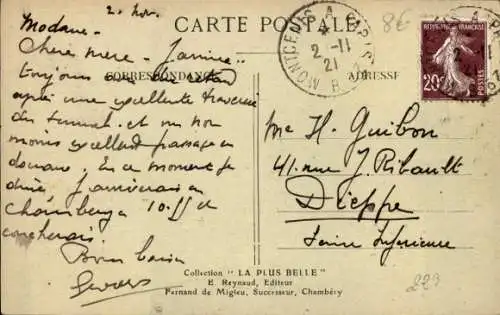 2. Nov.
CARTE POSTALE
8€
MONTCENIS A PARIS
2 - 11
21
Modane -
Chère mère - J'arrive
20c
POSTES
toujours
CORRESPONDANCE
ADRESSE
après une excellente traversée
du tunnel et un non
moins excellent passage en
douane. En ce moment je
dîne. J'arriverai à
Chambéry à 10.
coucherai.
Bon baiser
Me H. Guibon
41. rue J. Ribault
Dieppe
Seine Inférieure
Collection "LA PLUS BELLE"
E. Reynaud, Editeur
Fernand de Migieu, Successeur, Chambéry
223